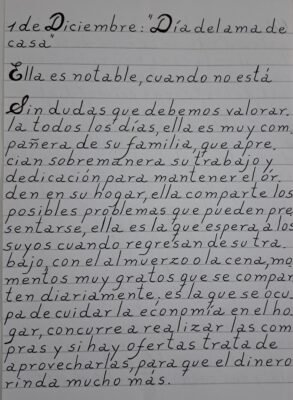 1 de Diciembre: "Día del ama de
casa"
Ella es notable, cuando no está
Sin dudas que debemos valorar.
la todos los días, ella es muy com
pañera de su familia, que apre.
cian sobremanera su trabajo y
dedicación para mantener el ór.
den en su hogar, ella comparte los
posibles problemas que pueden pre
sentarse, ella es la que espera a los
suyos cuando regresan de su tra.
bajo, con el almuerzo o la cena, mo
mentos muy gratos que se compar
ten diariamente, es la que se ocu
pa de cuidar la economía en el ho
gar, concurre a realizar las com
pras y si hay ofertas trata de
aprovecharlas, para que el dinero
rinda mucho más.